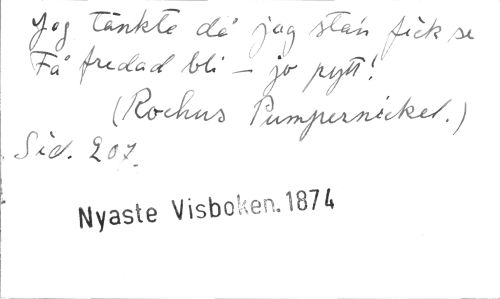 Jag tänkte då jag stan fick se
Få fredad bli – jo pytt!
(Rochus Pumpernickel.)
Sid. 207.
Nyaste Visboken. 1874